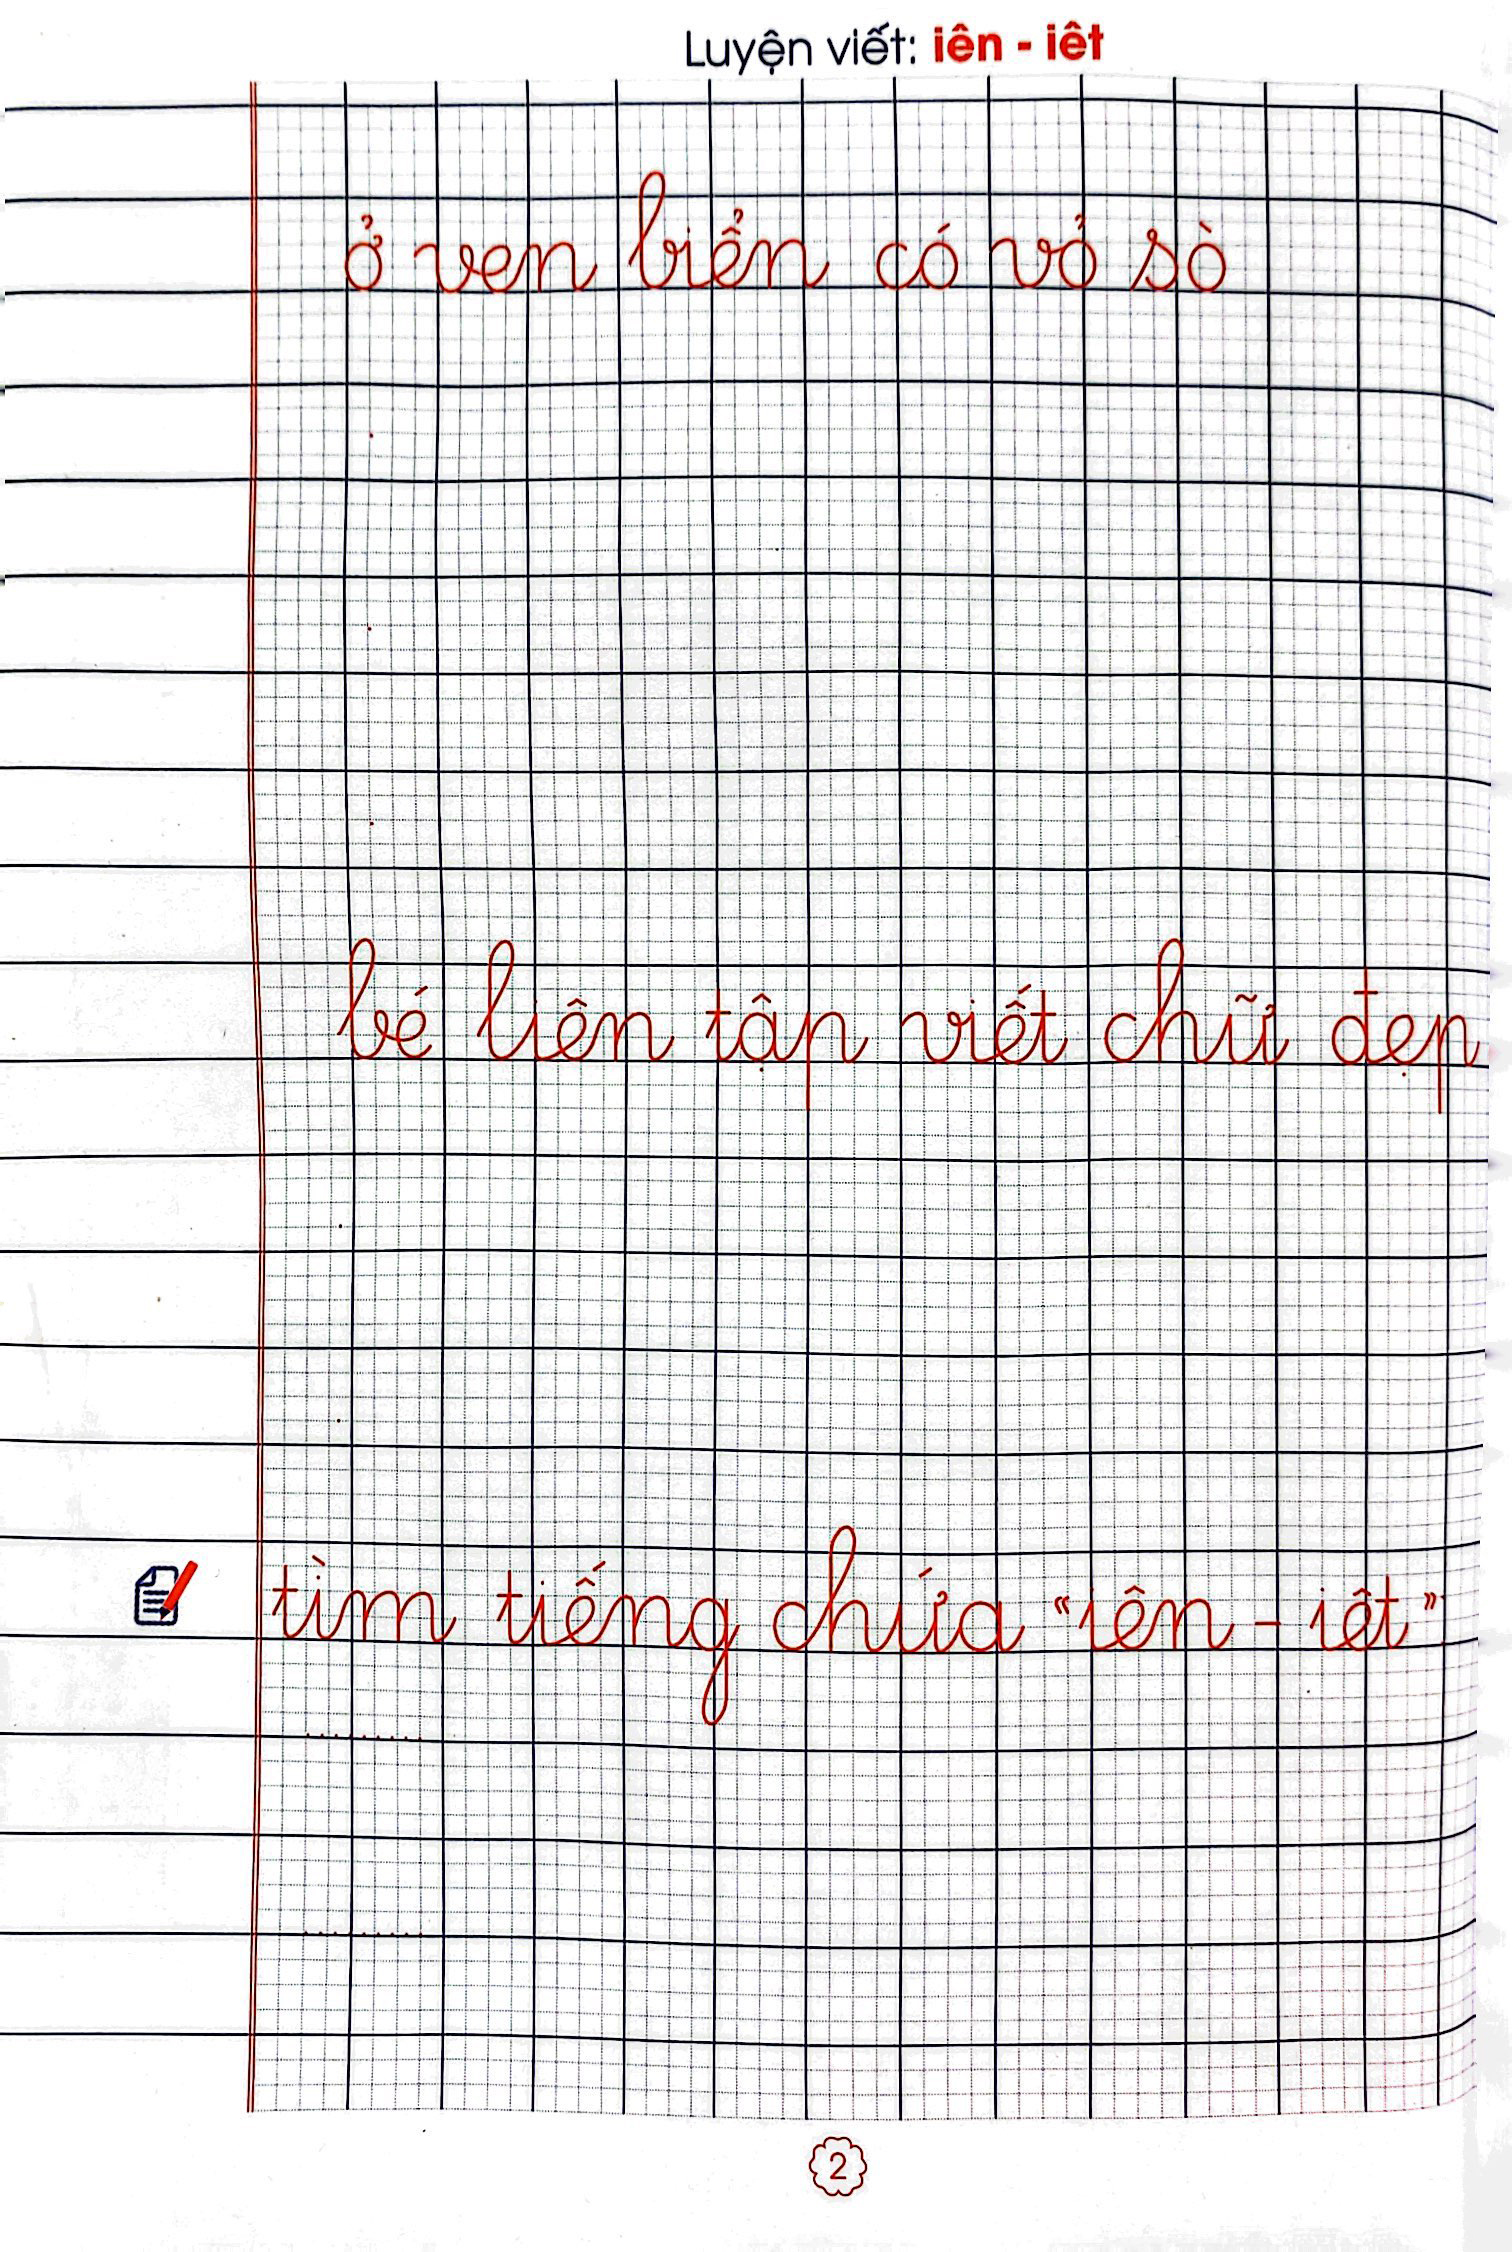 Luyện viết: iên - iêt
ở ven biển có vỏ sò
bé liên tập viết chữ đẹp
tìm tiếng chứa “iên - iêt”
2